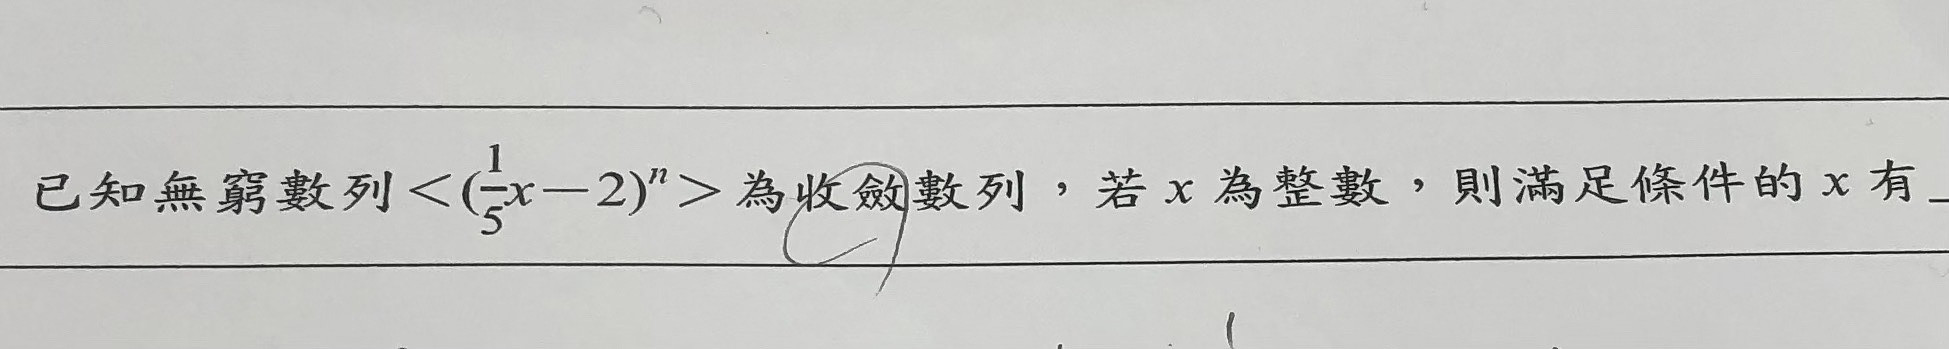 已知無窮數列<(\frac{1}{5}x−2)^n>為收斂數列，若 x 為整數，則滿足條件的 x 有